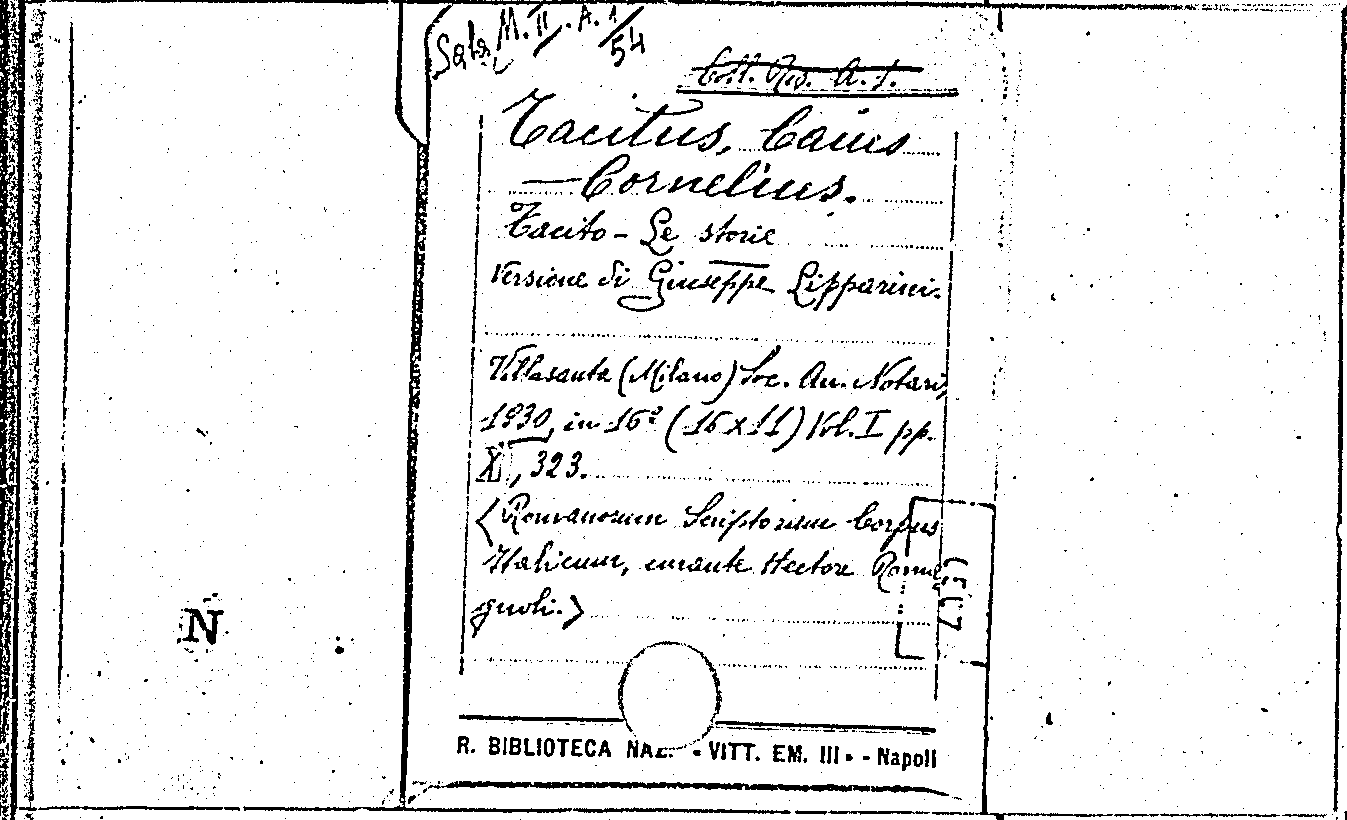 Sala M. II. A. 1/54
Coll. Riv. A. 1.
Tacitus, Caius
— Cornelius.
Tacito - Le storie
Versione di Giuseppe Lipparini.
Villasanta (Milano) Soc. An. Notari,
1930, in 16° (16x11) Vol. I pp.
XI, 323.
<Romanorum Scriptorum Corpus
Italicum, curante Hectore Roma
gnoli.>
N
R. BIBLIOTECA NAZ. « VITT. EM. III » - Napoli